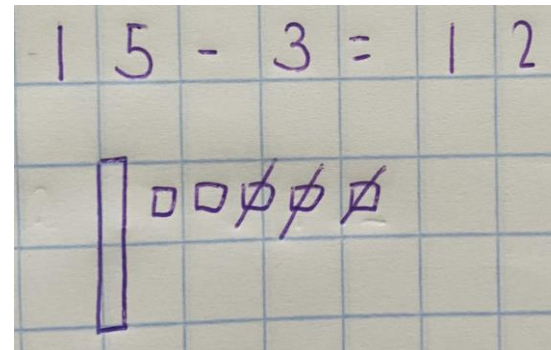 15 - 3 = 12